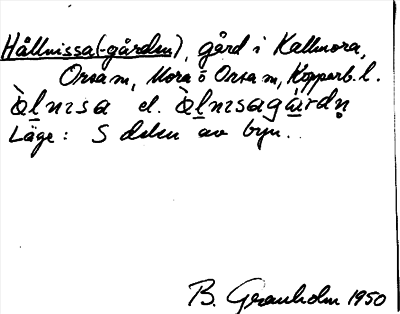 Hållnissa(-gården), gård i Kallmora,
Orsa sn, Mora o Orsa sn, Kopparb. l.
ɑ̀lnɪsa el. ɑ̀lnɪsagɑ́ːrdn̥
Läge: S delen av byn.
B. Granholm 1950